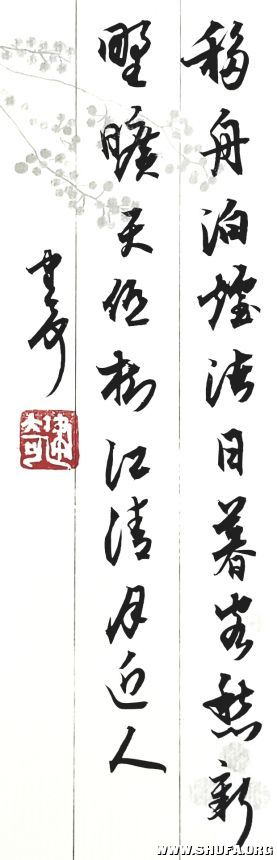 移舟泊煙渚日暮客愁新
野曠天低樹江清月近人
建奇
建奇
WWW.SHUFA.ORG